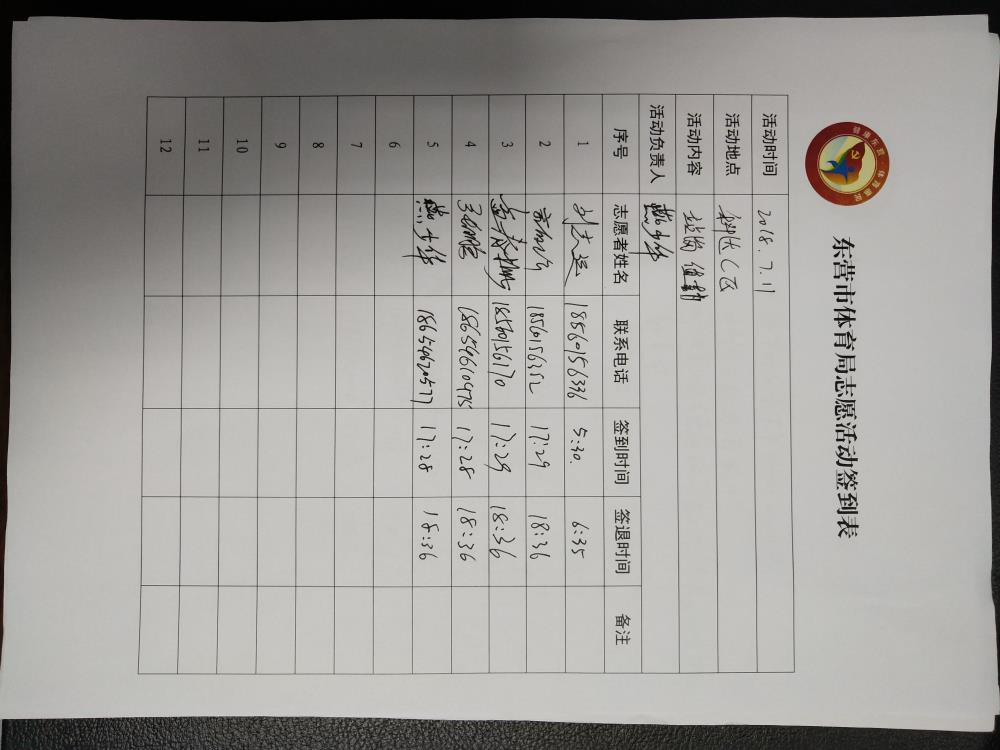 东营市体育局志愿活动签到表
活动时间 2018.7.11
活动地点 科达C区
活动内容 站岗 值勤
活动负责人
序号 志愿者姓名 联系电话 签到时间 签退时间 备注
1 18560156336 5:30. 6:35
2 18560156352 17:29 18:36
3 18560156170 17:29 18:36
4 18654610475 17:28 18:36
5 18654620577 17:28 18:36
6
7
8
9
10
11
12